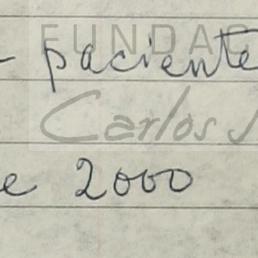 FUNDAC
- paciente
Carlos J
e 2000